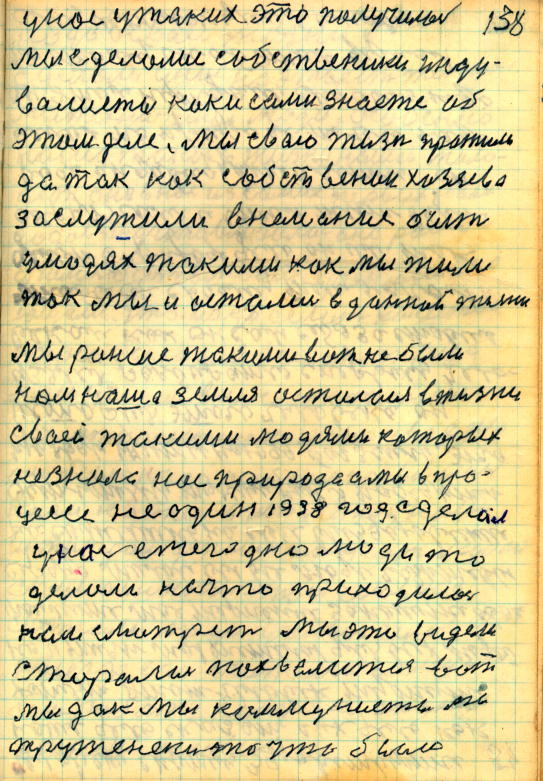 унас утаких это получилос 138
мы сделоми собственики инду-
валисты каки сами знаете об
этом деле, мы сваю тызн прожили
да так как собственои хозяева
заслужили внемание быт
людях такими как мы тили
так мы и астались в данной жизни
мы ранше такими вот не были
нам наша земля осталася в жизни
своей такими людями которых
незнала нас природа а мы в про-
цесе не один 1938 год сделал
унас ежегодно люди то
делали на что приходилос
нам смотрет мы это видели
старалис похвалится вот
мы дак мы каммунисты мы
труженеки то что было